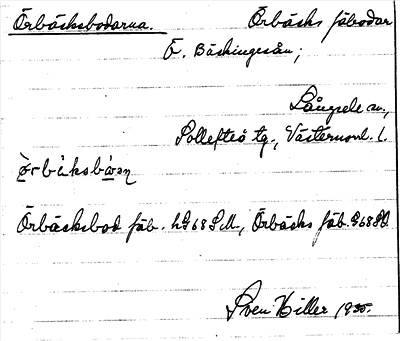 Örbäcksbodarna. Örbäcks fäbodar
Ö. Bäckingesån;
Långsele sn.,
Sollefteå tg., Västernorrl. l.
Örbäcksbod fäb. hG68SM, Örbäcks fäb. G68
Sven Hiller 1935.